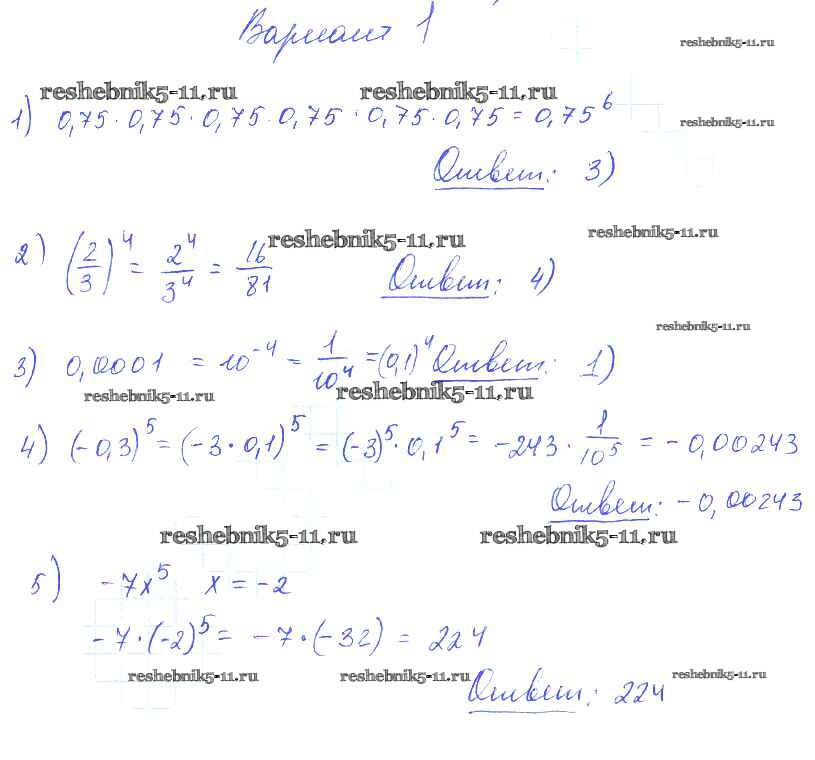 Вариант 1
reshebnik5-11.ru
reshebnik5-11.ru reshebnik5-11.ru
1) 0,75 · 0,75 · 0,75 · 0,75 · 0,75 · 0,75 = 0,75⁶
reshebnik5-11.ru
Ответ: 3)
reshebnik5-11.ru reshebnik5-11.ru
2) (2/3)⁴ = 2⁴/3⁴ = 16/81 Ответ: 4)
reshebnik5-11.ru
3) 0,0001 = 10⁻⁴ = 1/10⁴ = (0,1)⁴ Ответ: 1)
reshebnik5-11.ru reshebnik5-11.ru
4) (-0,3)⁵ = (-3 · 0,1)⁵ = (-3)⁵ · 0,1⁵ = -243 · 1/10⁵ = -0,00243
Ответ: -0,00243
reshebnik5-11.ru reshebnik5-11.ru
5) -7x⁵ x = -2
-7 · (-2)⁵ = -7 · (-32) = 224
reshebnik5-11.ru reshebnik5-11.ru reshebnik5-11.ru
Ответ: 224